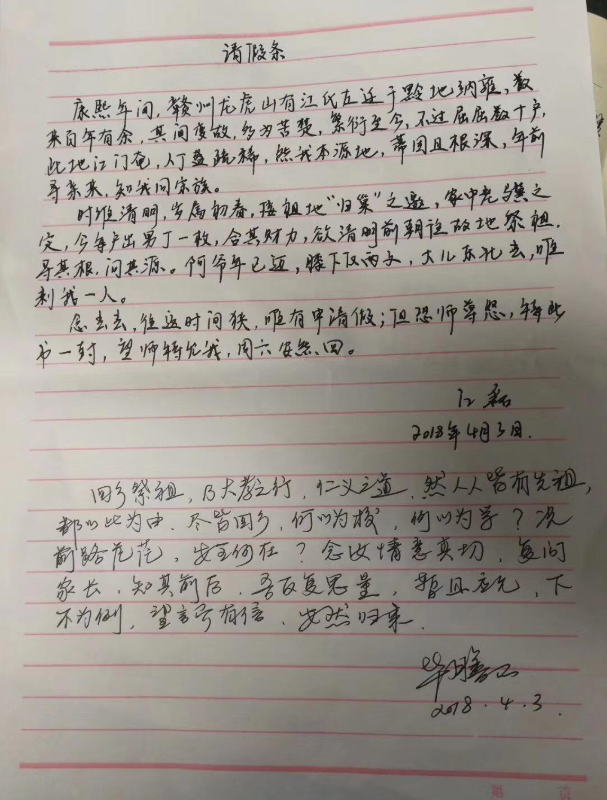 请假条
康熙年间，赣州龙虎山有江氏左迁于黔地纳雍，数
来百年有余，其间变故，多为苦楚，繁衍至今，不过屈屈数十户，
此地江门奄，人丁益疏稀，然我本源地，蒂固且根深，年前
寻亲来，知我同宗族。
时维清明，岁属初春，接祖地“归巢”之邀，家中老与冀之
定，今每户出男丁一枚，合其财力，欲清明前朝诣故地祭祖，
寻其根，问其源。阿爷年已迈，膝下仅两子，大儿东北去，唯
剩我一人。
念去去，往返时间狭，唯有申请假；但恐师尊怒，特此
书一封，望师特允我，周六安然回。
江磊
2018年4月3日.
回乡祭祖，乃大孝之行，仁义之道，然人人皆有先祖，
都以此为由，尽皆回乡，何以为校，何以为学？况
前路茫茫，安主何在？念汝情意真切，复问
家长，知其前后，吾反复思量，暂且应允，下
不为例，望言守有信，安然归来.
2018.4.3.
第 页